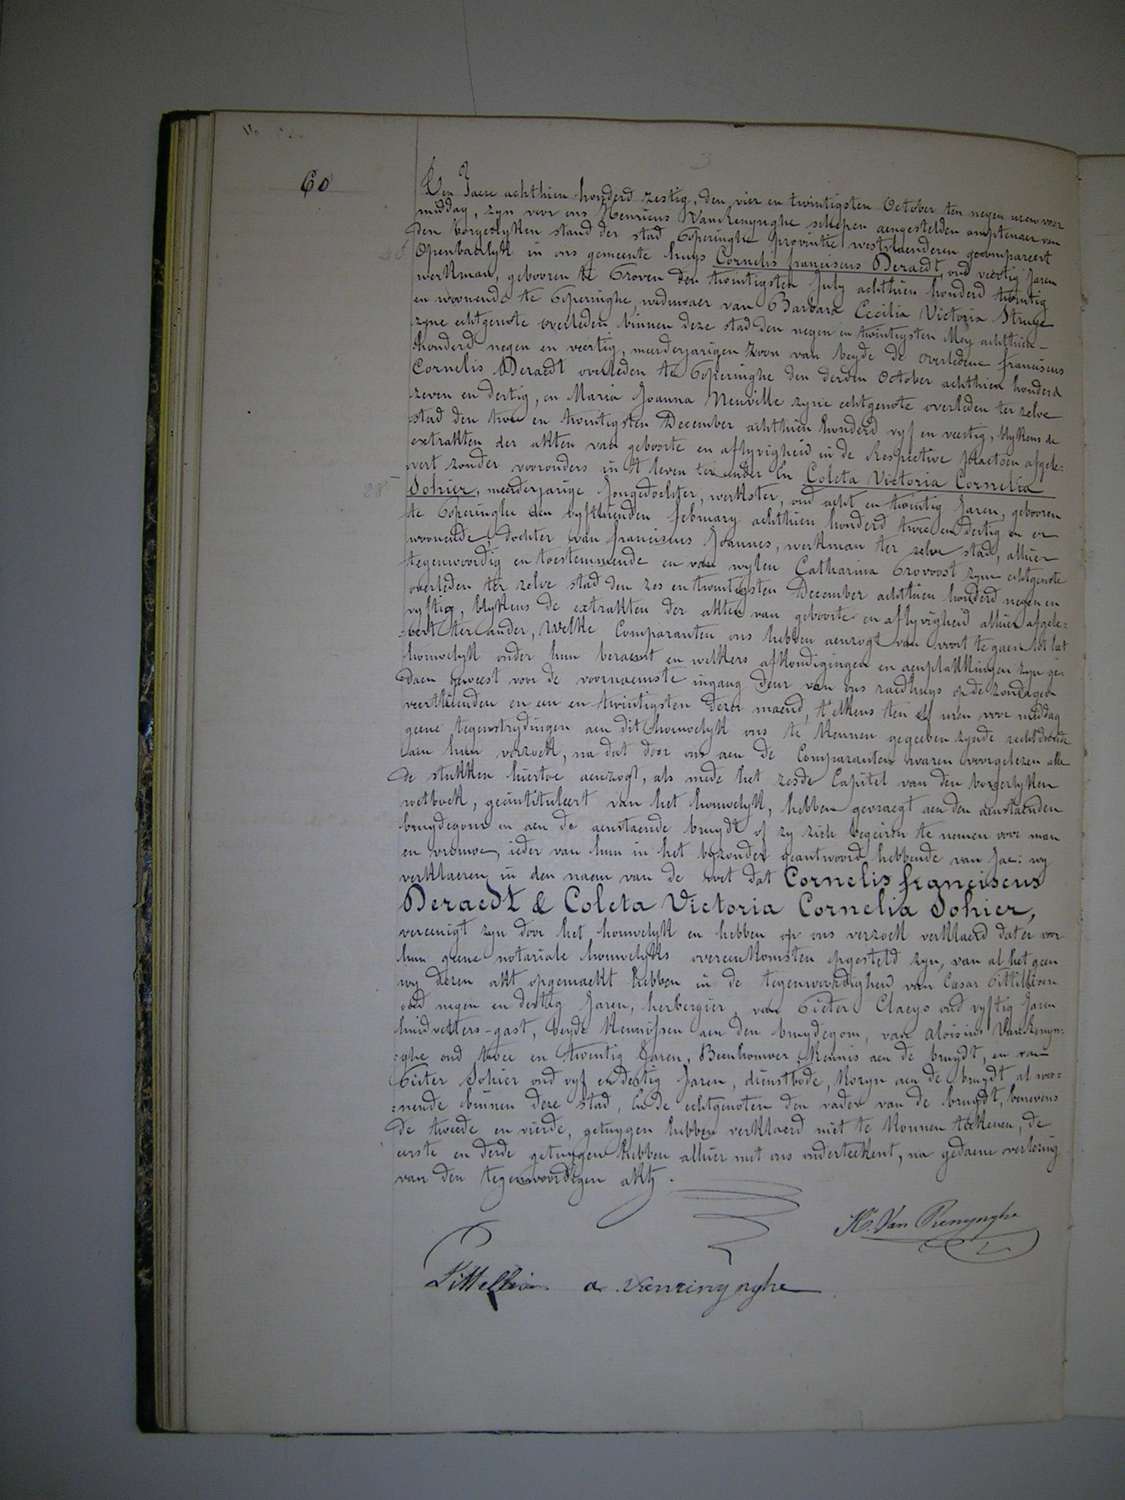 60
Den Jaere achthien honderd zestig, den vier en twintigsten October ten negen uren voor
middag, zyn voor ons Henricus Vanrenynghe schepen aengestelden amptenaer van
den borgerlyken stand der stad Poperinghe provintie westvlaenderen gecompareert
Openbaerlyk in ons gemeente huys Cornelis franciscus Deraedt, oud veertig Jaren
werkman, gebooren te Proven den twintigsten July achthien honderd twintig
en woonende te Poperinghe, weduwaer van Barbara Cecilia Victoria Struye
zyne echtgenote overleden binnen deze stad den negen en twintigsten Mey achthien-
honderd negen en veertig, meerderjarigen Zoon van beyde de overledene franciscus
Cornelis Deraedt overleden te Poperinghe den derden October achthien honderd
zeven en dertig, en Maria Joanna Neuville zyne echtgenote overleden ter zelve
stad den twee en twintigsten December achthien honderd vyf en veertig, blykens de
extrakten der akten van geboorte en aflyvigheid in de Respective plaetsen afgele-
vert zonder vooronders in 't leven ter ander En Coleta Victoria Cornelia
28
Sohier, meerderjarige Jongedochter, werkster, oud acht en twintig Jaren, gebooren
te Poperinghe den vyfthienden february achthien honderd twee en dertig en er
woonende, dochter van franciscus Joannes, werkman ter zelve stad, alhier
tegenwoordig en toestemmende en van wylen Catharina Provoost zyne echtgenote
overleden ter zelve stad den zes en twintigsten December achthien honderd negen en
vyftig, blykens de extrakten der akten van geboorte en aflyvigheid alhier afgele-
vert ter ander, Welke Comparanten ons hebben aenzogt van voort te gaen tot het
houwelyk onder hun beraemt en welkers afkondigingen en aenplakkingen zyn ge-
daen geweest voor de voornaemste ingang deur van ons raedhuys op de zondagen
veerthienden en een en twintigsten dezer maend, t'elkens ten elf uren voor middag
geene tegenstrydingen aen dit houwelyk ons te kennen gegeven zynde rechtdoende
aen hun verzoek, na dat door ons aen de Comparanten waren voorgelezen alle
de stukken hiertoe aenzogt, als mede het zesde Capitel van den borgerlyken
wetboek, geintituleert van het houwelyk, hebben gevraegt aen den aenstaenden
bruydegom en aen de aenstaende bruydt of zy zich begeiren te nemen voor man
en vrouwe, ieder van hun in het byzonder geantwoord hebbende van Jae: wy
verklaeren in den naem van de wet dat Cornelis franciscus
Deraedt & Coleta Victoria Cornelia Sohier,
vereenigt zyn door het houwelyk en hebben op ons verzoek verklaerd dat er voor
hun geene notariale houwelyks overeenkomsten opgesteld zyn, van al het geen
wy dezen akt opgemaekt hebben in de tegenwoordigheid van Cesar Pittillioen
oud negen en dertig Jaren, herbergier, van Pieter Claeys oud vyftig Jaren
huidvetters-gast, beyde Kennissen aen den bruydegom, van Aloisius Vanreny-
ghe oud twee en twintig Jaren, Beenhouwer, Kennis aen de bruydt, en van
Pieter Sohier oud vyf en dertig Jaren, dienstbode, Kozyn aen de bruydt al woo-
nende binnen deze stad, En de echtgenoten den vader van de bruydt, benevens
de tweede en vierde, getuygen hebben verklaerd niet te konnen teekenen, de
eerste en derde getuygen hebben alhier met ons onderteekent, na gedaene voorlezing
van den tegenwoordigen akt.
H. Van Renynghe
Pittellioen a vanrenynghe